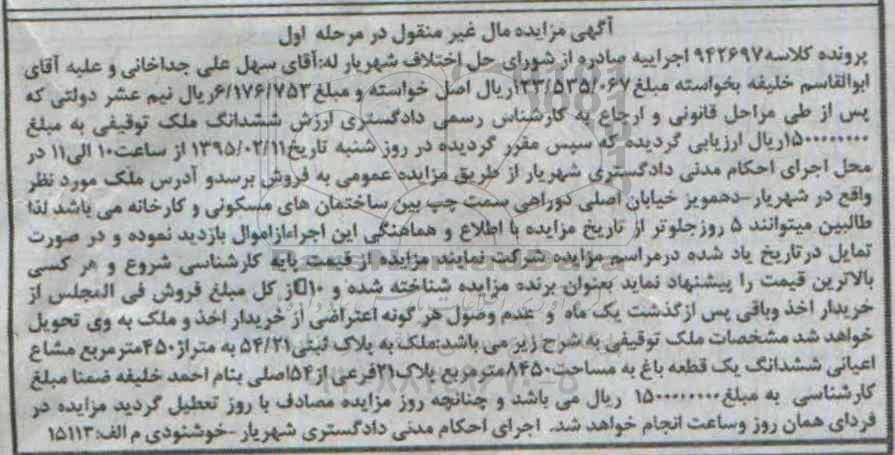 آگهی مزایده مال غیر منقول در مرحله اول
پرونده کلاسه۹۴۲۶۹۷ اجراییه صادره از شورای حل اختلاف شهریار له:آقای سهل علی جداخانی و علیه آقای
ابوالقاسم خلیفه بخواسته مبلغ۱۲۳/۵۳۵/۰۶۷ریال اصل خواسته و مبلغ۶/۱۷۶/۷۵۳ریال نیم عشر دولتی که
پس از طی مراحل قانونی و ارجاع به کارشناس رسمی دادگستری ارزش ششدانگ ملک توقیفی به مبلغ
ریال ارزیابی گردیده که سپس مقرر گردیده در روز شنبه تاریخ۱۳۹۵/۰۲/۱۱ از ساعت۱۰ الی۱۱ در
محل اجرای احکام مدنی دادگستری شهریار از طریق مزایده عمومی به فروش برسدو آدرس ملک مورد نظر
واقع در شهریار-دهمویز خیابان اصلی دوراهی سمت چپ بین ساختمان های مسکونی و کارخانه می باشد لذا
طالبین میتوانند ۵ روزجلوتر از تاریخ مزایده با اطلاع و هماهنگی این اجرا،ازاموال بازدید نموده و در صورت
تمایل درتاریخ یاد شده درمراسم مزایده شرکت نمایند مزایده از قیمت پایه کارشناسی شروع و هر کسی
بالاترین قیمت را پیشنهاد نماید بعنوان برنده مزایده شناخته شده و ۱۰□از کل مبلغ فروش فی المجلس از
خریدار اخذ وباقی پس ازگذشت یک ماه و عدم وصول هر گونه اعتراضی از خریدار اخذ و ملک به وی تحویل
خواهد شد مشخصات ملک توقیفی به شرح زیر می باشد:ملک به پلاک ثبتی۵۴/۲۱ به متراژ۴۵۰مترمربع مشاع
اعیانی ششدانگ یک قطعه باغ به مساحت۸۴۵۰مترمربع پلاک۲۱فرعی از۵۴اصلی بنام احمد خلیفه ضمنا مبلغ
کارشناسی به مبلغ ریال می باشد و چنانچه روز مزایده مصادف با روز تعطیل گردید مزایده در
فردای همان روز وساعت انجام خواهد شد. اجرای احکام مدنی دادگستری شهریار -خوشنودی م الف:۱۵۱۱۳